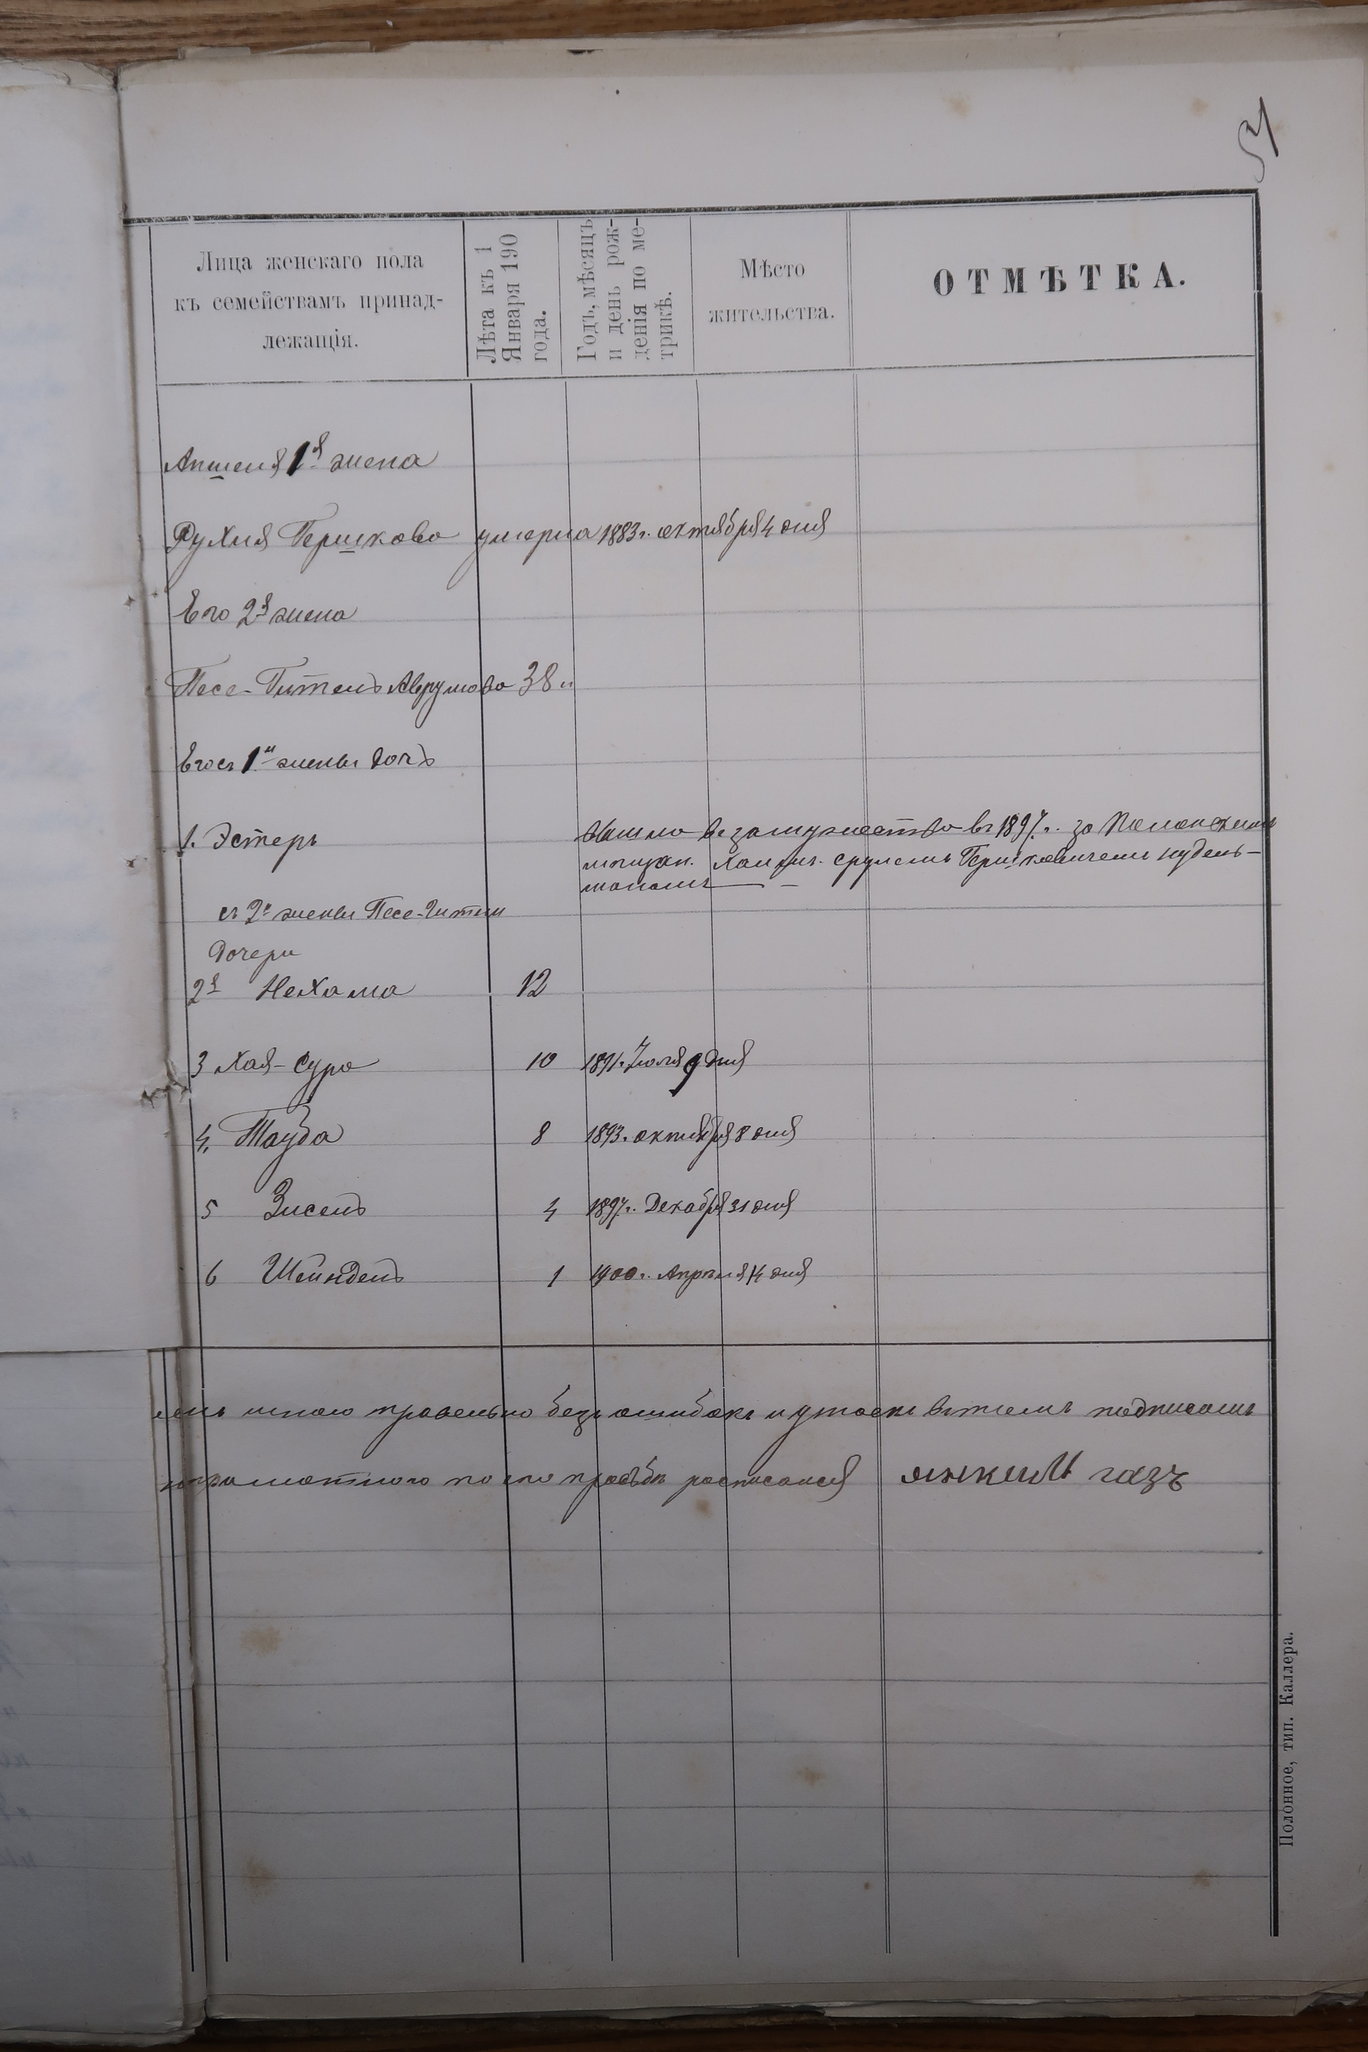 51
Лица женскаго пола
къ семействамъ принад-
лежащія.
Лѣта къ 1
Января 190
года.
Годъ, мѣсяцъ
и день рож-
денія по ме-
трикѣ.
Мѣсто
жительства.
ОТМѢТКА.
Апшеля 1я жена
Рухля Гершкова умерла 1883 г. октября 4 дня
Его 2я жена
Песе-Гитель Аврумова 38 л
Его съ 1й жены дочь
1. Эстеръ
Вышла в замужество въ 1897 г. за Полонскимъ
мѣщан. Срулемъ Гершковичемъ Нудель-
маномъ
съ 2й жены Песе-Гитли
дочери
2я Нехама 12
3 Хая-Сура 10 1891 г. Іюля 9 дня
4. Тауба 8 1893 г. октября 8 дня
5 Зисель 4 1897 г. Декабря 31 дня
6 Шейндель 1 1900 г. Апрѣля 14 дня
мною правельно безъ ошибокъ и въ томъ подписомъ
по его просьбѣ росписался янкель газъ
Полонное, тип. Каллера.